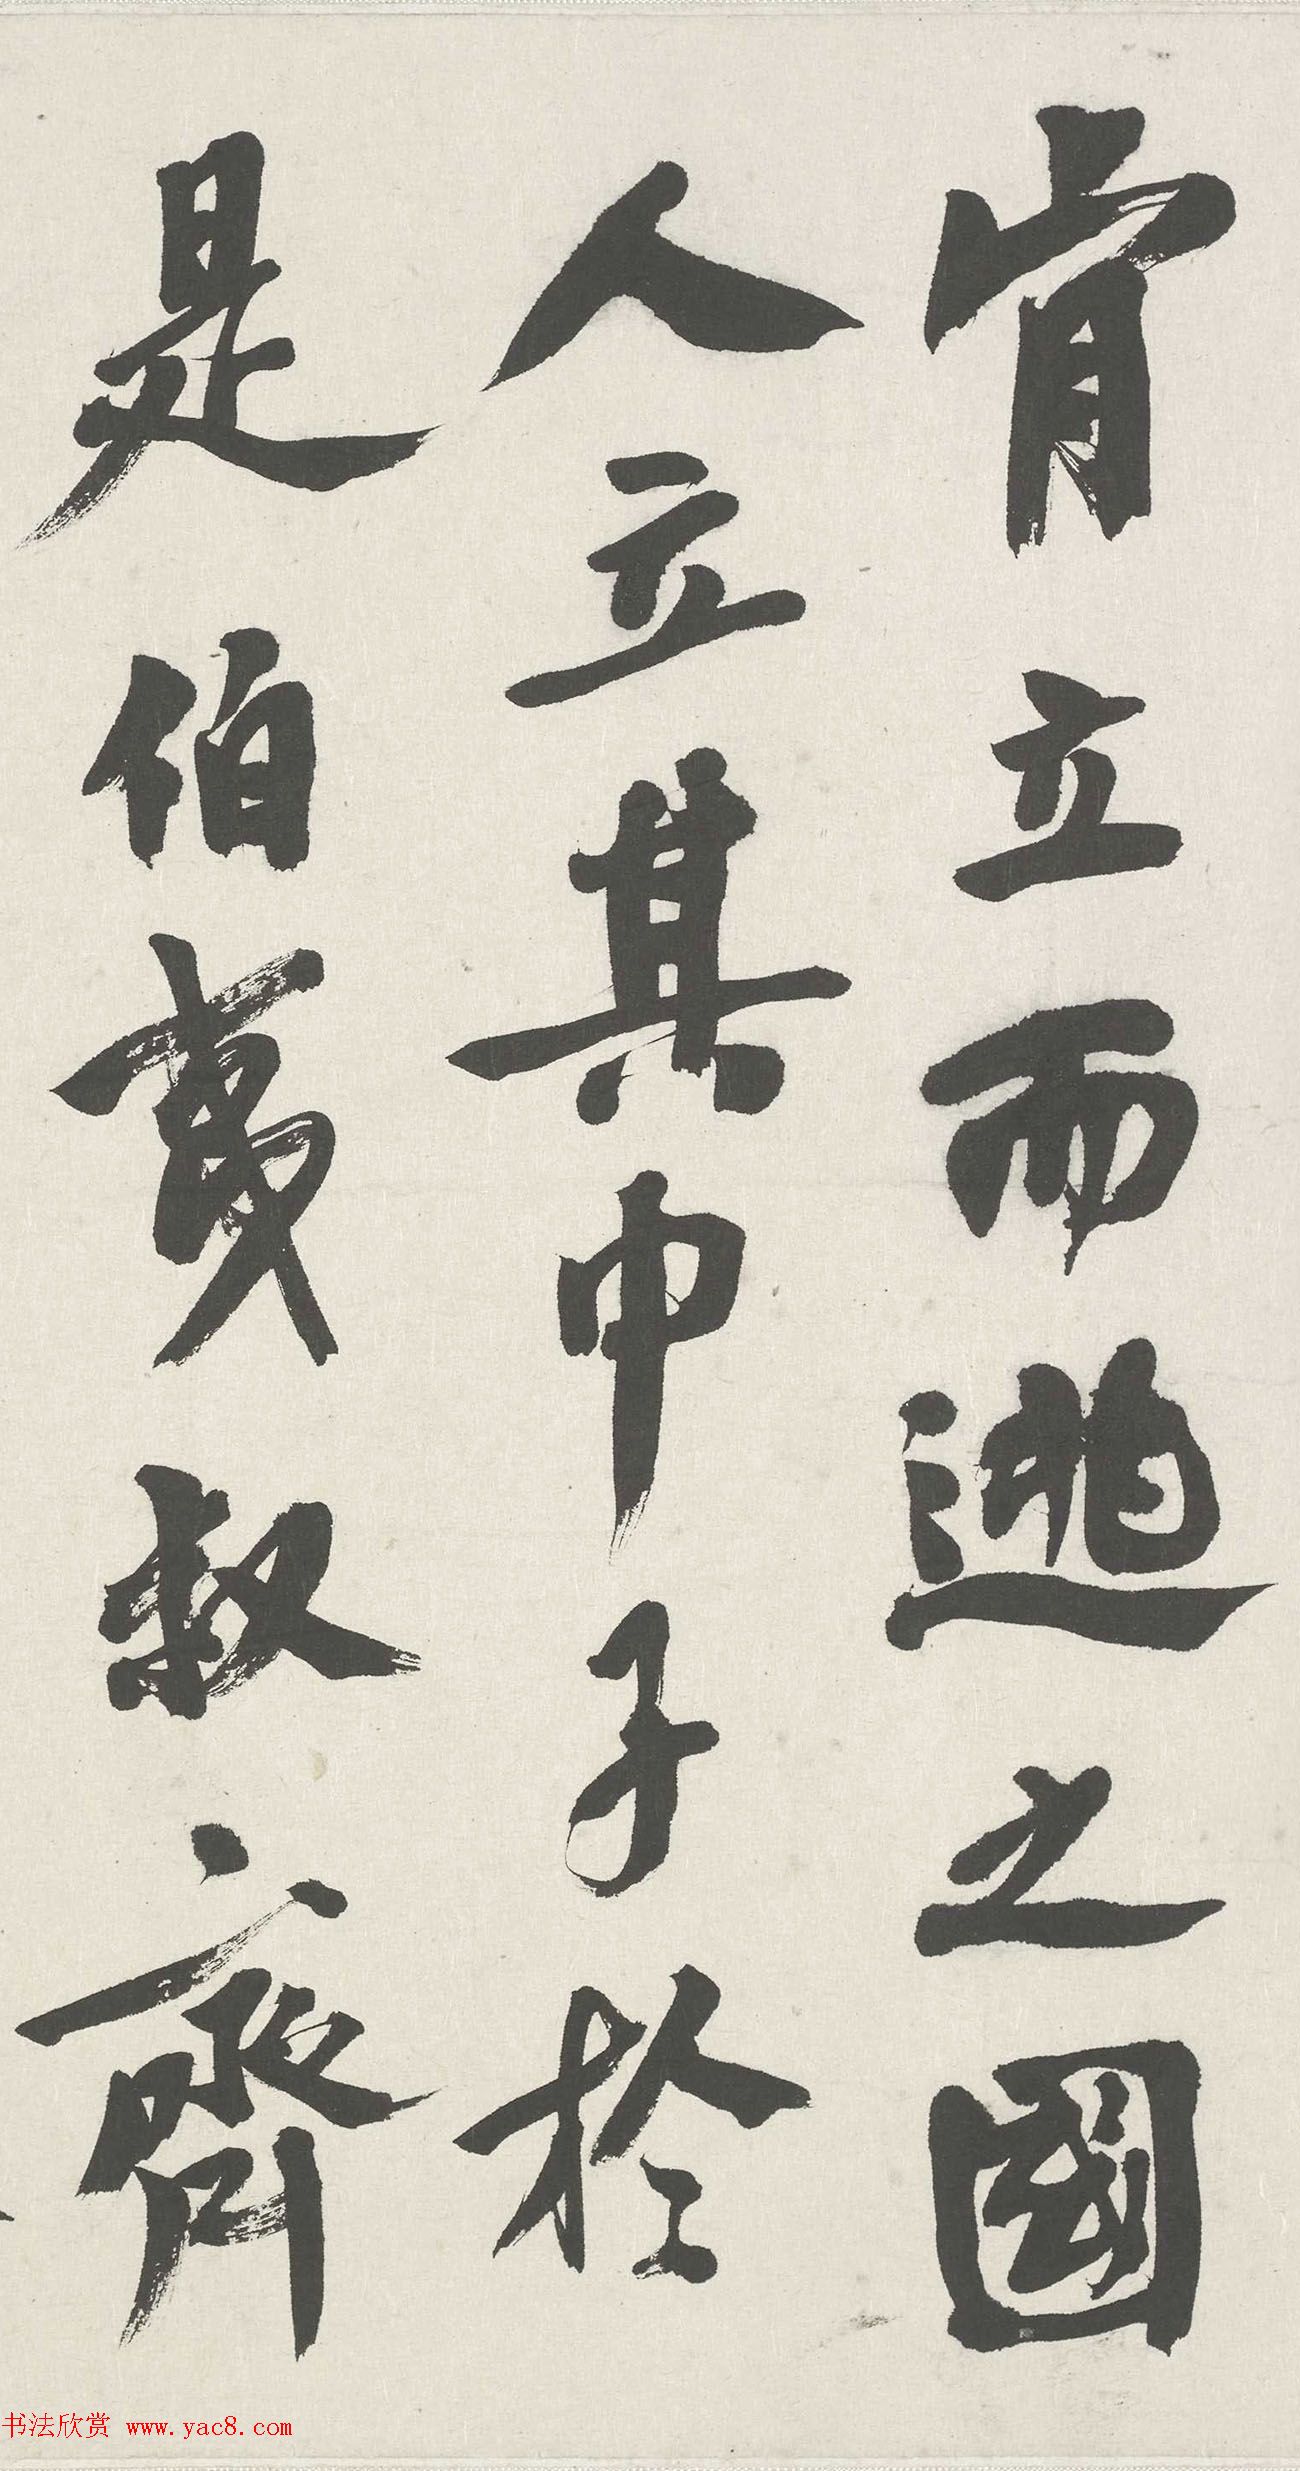 肯立而逃之國
人立其中子於
是伯夷叔齊
书法欣赏 www.yac8.com